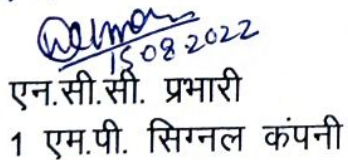 15.08.2022
एन.सी.सी. प्रभारी
1 एम.पी. सिग्नल कंपनी